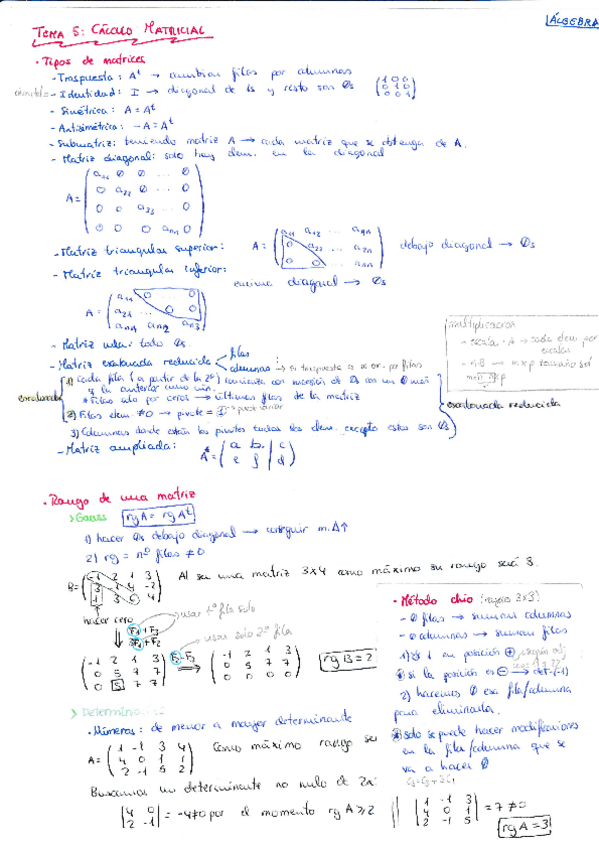 ÁLGEBRA
TEMA 5: CÁLCULO MATRICIAL
· Tipos de matrices
- Traspuesta: Aᵗ → cambiar filas por columnas
- Identidad: I → diagonal de 1s y resto son 0s (1 0 0 / 0 1 0 / 0 0 1)
- Simétrica: A = Aᵗ
- Antisimétrica: -A = Aᵗ
- Submatriz: teniendo matriz A → cada matriz que se obtenga de A.
- Matriz diagonal: solo hay elem. en la diagonal
A = (a₁₁ 0 0 ... 0 / 0 a₂₂ 0 ... 0 / 0 0 a₃₃ ... 0 / 0 0 0 aₙₙ 0)
- Matriz triangular superior: A = (a₁₁ a₁₂ ... a₁ₙ / 0 a₂₂ ... a₂ₙ / 0 0 ... aₙₙ) debajo diagonal → 0s
- Matriz triangular inferior: encima diagonal → 0s
A = (a₁₁ 0 ... 0 / a₂₁ ... 0 / aₙ₁ aₙ₂ aₙ₃)
- Matriz nula: todo 0s.
Multiplicaciones
- escalar · A → cada elem por escalar
- A·B → m×p tamaño será
- Matriz escalonada reducida filas
columnas → si traspuesta es e. r. por filas
escalonada
1) Cada fila (a partir de la 2ª) comienza con sucesión de 0s con un 0 más
q la anterior como mín.
* Filas solo por ceros → últimas filas de la matriz
2) Filas elem. ≠0 → pivote = 1
3) Columnas donde están los pivotes todos los elem. excepto estos son 0s
escalonada reducida
- Matriz ampliada: A* = (a b | c / e f | d)
· Rango de una matriz
> Gauss rg A = rg Aᵗ
1) hacer 0s debajo diagonal → conseguir m.Δ↑
2) rg = nº filas ≠ 0
Al ser una matriz 3x4 como máximo su rango será 3.
hacer cero
F₁+F₃
usar 1ª fila solo
F₃-F₂
usar solo 2ª fila
(-1 2 1 3 / 0 5 7 7 / 0 5 7 7) ⇒ (-1 2 1 3 / 0 5 7 7 / 0 0 0 0) rg B = 2
· Método chio (rangos 3x3)
- 0 filas → sumar columnas
- 0 columnas → sumar filas
1) 1 en posición ⊕
si la posición es ⊖ → det·(-1)
2) hacemos 0 esa fila/columna
para eliminarla.
solo se puede hacer modificaciones
en la fila/columna que se
va a hacer 0
> Determinantes
· Números: de menor a mayor determinante
A = (1 -1 3 4 / 4 0 1 1 / 2 -1 5 2) Como máximo rango ser
Buscamos un determinante no nulo de 2x
|4 0 / 2 -1| = -4≠0 por el momento rg A ≥ 2
|1 -1 3 / 4 0 1 / 2 -1 5| = 7 ≠0
rg A = 3